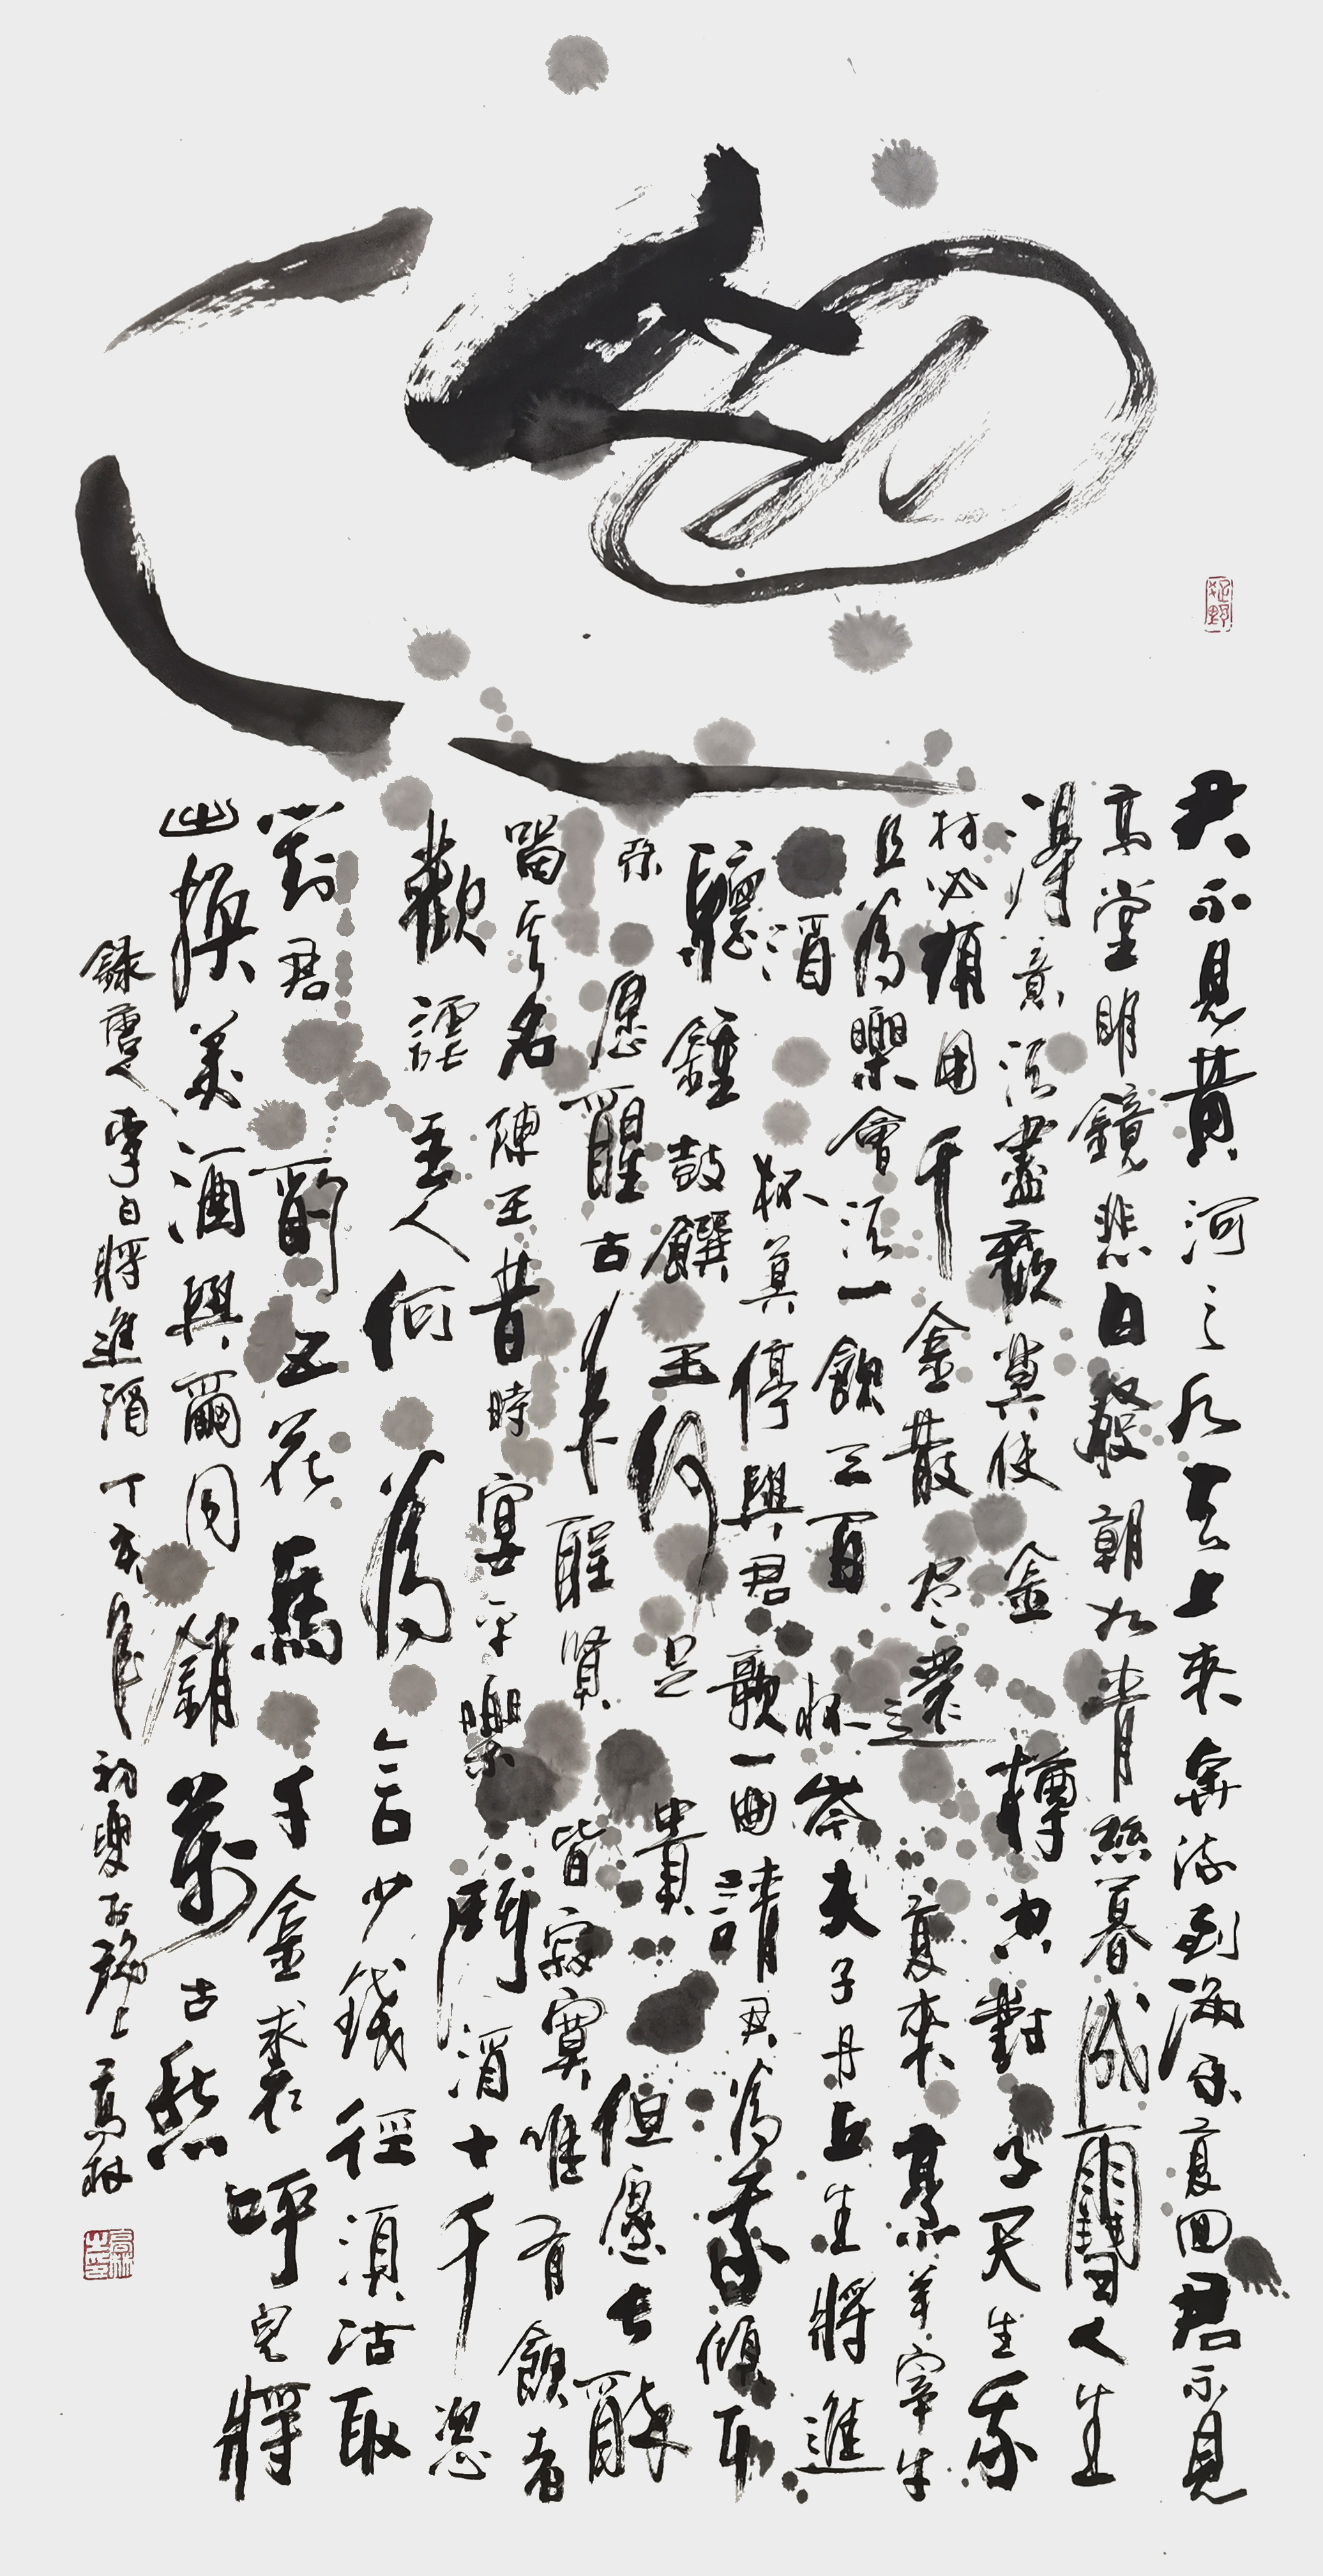 酒
君不見黃河之水天上來奔流到海不復回君不見
高堂明鏡悲白發朝如青絲暮成雪人生
得意須盡歡莫使金樽空對月天生我
材必有用千金散盡還復來烹羊宰牛
且為樂會須一飲三百杯岑夫子丹丘生將進
酒杯莫停與君歌一曲請君為我傾耳
聽鐘鼓饌玉何足貴但愿長醉
不愿醒古來聖賢皆寂寞唯有飲者
留其名陳王昔時宴平樂鬥酒十千恣
歡謔主人何為言少錢徑須沽取
對君酌五花馬千金裘呼兒將
出換美酒與爾同銷萬古愁
錄唐人李白將進酒丁亥年初夏於海上高林